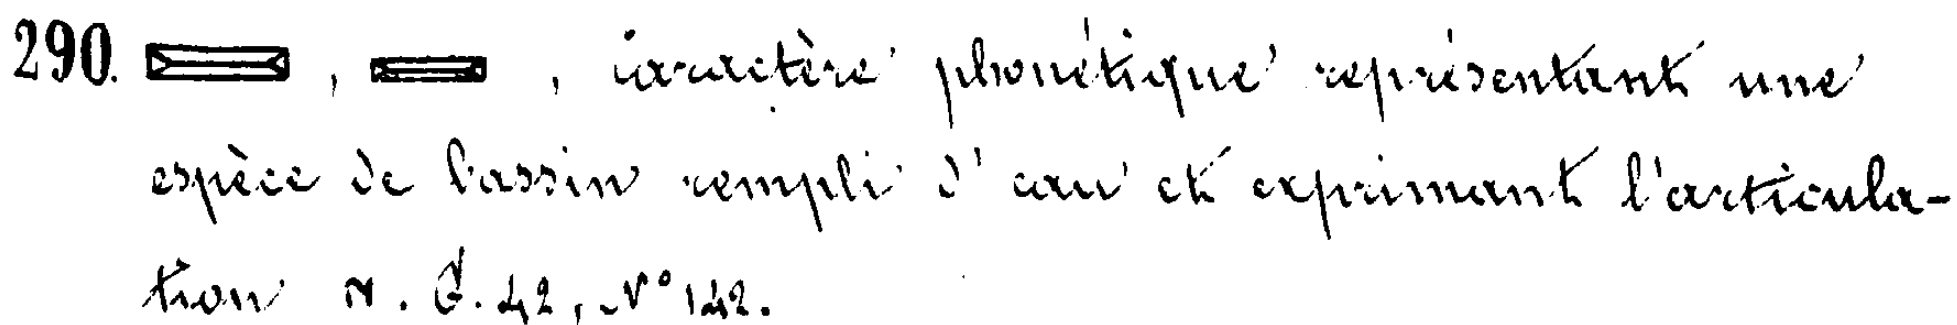 290. , , caractère phonétique représentant une
espèce de bassin rempli d'eau et exprimant l'articula-
tion ⲛ. G. 42, N° 142.